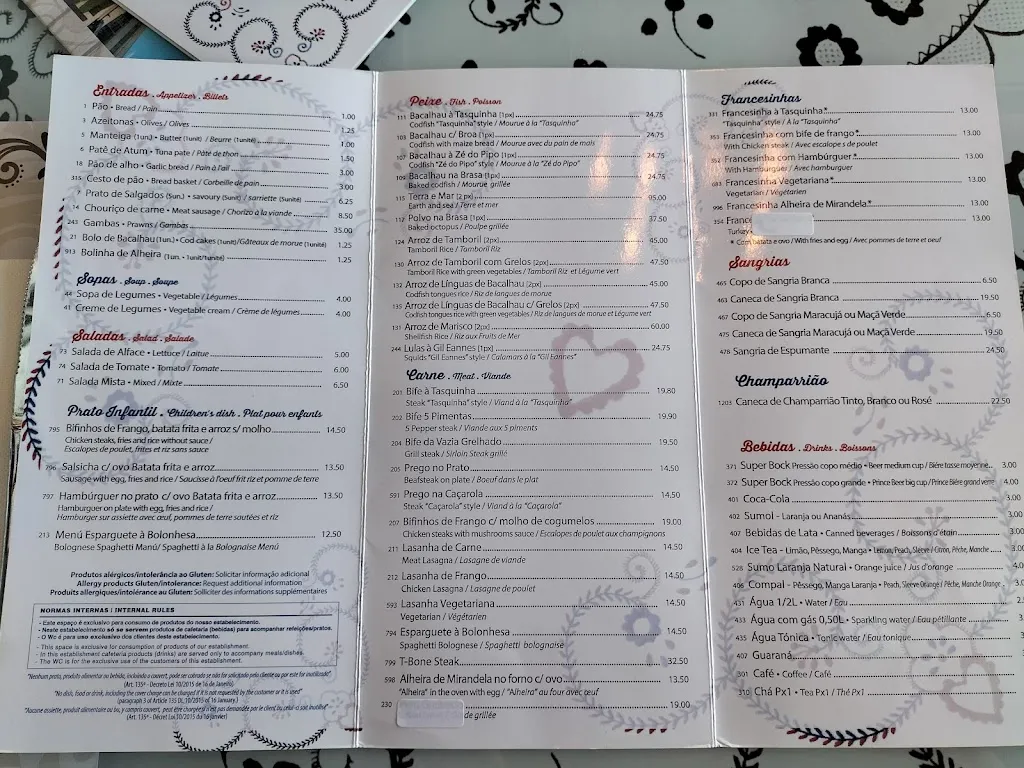 Entradas . Appetizer . Billets
1 Pão • Bread / Pain 1.00
3 Azeitonas • Olives / Olives 1.25
5 Manteiga (1un.) • Butter (1unit) / Beurre (1unité) 1.00
6 Patê de Atum • Tuna pate / Pâte de thon 1.50
18 Pão de alho • Garlic bread / Pain à l'ail 3.00
315 Cesto de pão • Bread basket / Corbeille de pain 3.00
Prato de Salgados (5un.) • savoury (5unit) / sarriette (5unité) 6.25
14 Chouriço de carne • Meat sausage / Chorizo à la viande 8.50
243 Gambas • Prawns / Gambas 35.00
21 Bolo de Bacalhau (1un.) • Cod cakes (1unit)/Gâteaux de morue (1unité) 1.25
913 Bolinha de Alheira (1un. • 1unit/1unité) 1.25
Sopas . Soup . Soupe
44 Sopa de Legumes • Vegetable / Légumes 4.00
41 Creme de Legumes • Vegetable cream / Crème de légumes 4.00
Saladas . Salad . Salade
73 Salada de Alface • Lettuce / Laitue 5.00
74 Salada de Tomate • Tomato / Tomate 6.00
71 Salada Mista • Mixed / Mixte 6.50
Prato Infantil . Children's dish . Plat pour enfants
795 Bifinhos de Frango, batata frita e arroz s/ molho 14.50
Chicken steaks, fries and rice without sauce /
Escalopes de poulet, frites et riz sans sauce
796 Salsicha c/ ovo Batata frita e arroz 13.50
Sausage with egg, fries and rice / Saucisse à l'oeuf frit riz et pomme de terre
797 Hambúrguer no prato c/ ovo Batata frita e arroz 13.50
Hamburguer on plate with egg, fries and rice /
Hamburger sur assiette avec œuf, pommes de terre sautées et riz
213 Menú Esparguete à Bolonhesa 12.50
Bolognese Spaghetti Manú/ Spaghetti à la Bolognaise Menú
Produtos alérgicos/intolerância ao Gluten: Solicitar informação adicional
Allergy products Gluten/intolerance: Request additional information
Produits allergiques/intolérance au Gluten: Solliciter des informations supplémentaires
NORMAS INTERNAS | INTERNAL RULES
- Este espaço é exclusivo para consumo de produtos do nosso estabelecimento.
- Neste estabelecimento só se servem produtos de cafetaria (bebidas) para acompanhar refeições/pratos.
- O Wc é para uso exclusivo dos clientes deste estabelecimento.
- This space is exclusive for consumption of products of our establishment.
- In this establishment cafeteria products (drinks) are served only to accompany meals/dishes.
- The WC is for the exclusive use of the customers of this establishment.
"Nenhum prato, produto alimentar ou bebida, incluindo o couvert, pode ser cobrado se não for solicitado pelo cliente ou por este for inutilizado"
(Art. 135º - Decreto Lei 10/2015 de 16 de Janeiro)
"No dish, food or drink, including the cover charge can be charged if it is not requested by the customer or it is used"
(paragraph 3 of Article 135 DL:10/2015 of 16 January.)
"Aucune assiette, produit alimentaire ou bo, y compris couvert, peut être chargée si n'est pas demandée par le client, ou celui-ci soit inutilisé"
(Art. 135º - Décret Lei 10/2015 du 16 janvier)
Peixe . Fish . Poisson
111 Bacalhau à Tasquinha [1px] 24.75
Codfish "Tasquinha" style / Mourue à la "Tasquinha"
103 Bacalhau c/ Broa [1px] 24.75
Codfish with maize bread / Mourue avec du pain de mais
107 Bacalhau à Zé do Pipo [1px] 24.75
Codfish "Zé do Pipo" style / Mourue à la "Zé do Pipo"
109 Bacalhau na Brasa [1px]
Baked codfish / Mourue grillée
115 Terra e Mar [2 px] 95.00
Earth and sea / Terre et mer
112 Polvo na Brasa [1px] 37.50
Baked octopus / Poulpe grillée
124 Arroz de Tamboril [2px] 45.00
Tamboril Rice / Tamboril Riz
130 Arroz de Tamboril com Grelos [2px] 47.50
Tamboril Rice with green vegetables / Tamboril Riz et Légume vert
132 Arroz de Línguas de Bacalhau [2px] 45.00
Codfish tongues rice / Riz de langues de morue
135 Arroz de Línguas de Bacalhau c/ Grelos [2px] 47.50
Codfish tongues rice with green vegetables / Riz de langues de morue et Légume vert
131 Arroz de Marisco [2px] 60.00
Shellfish Rice / Riz aux Fruits de Mer
244 Lulas à Gil Eannes [1px] 24.75
Squids "Gil Eannes" style / Calamars à la "Gil Eannes"
Carne . Meat . Viande
201 Bife à Tasquinha 19.80
Steak "Tasquinha" style / Viand à la "Tasquinha"
202 Bife 5 Pimentas 19.90
5 Pepper steak / Viande aux 5 piments
204 Bife da Vazia Grelhado 19.50
Grill steak / Sirloin Steak grillé
205 Prego no Prato 14.50
Beafsteak on plate / Boeuf dans le plat
591 Prego na Caçarola 14.50
Steak "Caçarola" style / Viand à la "Caçarola"
207 Bifinhos de Frango c/ molho de cogumelos 19.00
Chicken steaks with mushrooms sauce / Escalopes de poulet aux champignons
211 Lasanha de Carne 14.50
Meat Lasagna / Lasagne de viande
212 Lasanha de Frango 14.50
Chicken Lasagna / Lasagne de poulet
593 Lasanha Vegetariana 14.50
Vegetarian / Végétarien
794 Esparguete à Bolonhesa 14.50
Spaghetti Bolognese / Spaghetti bolognaise
799 T-Bone Steak 32.50
598 Alheira de Mirandela no forno c/ ovo 13.50
"Alheira" in the oven with egg / "Alheira" au four avec œuf
230 19.00
de grillée
Francesinhas
331 Francesinha à Tasquinha* 13.00
"Tasquinha" style / A la "Tasquinha"
353 Francesinha com bife de frango* 13.00
With Chicken steak / Avec escalopes de poulet
352 Francesinha com Hambúrguer* 13.00
With Hamburguer / Avec hamburguer
693 Francesinha Vegetariana* 13.00
Vegetarian / Végétarien
996 Francesinha Alheira de Mirandela* 13.00
354 France 13.00
Turkey
* Com batata e ovo / With fries and egg / Avec pommes de terre et oeuf
Sangrias
465 Copo de Sangria Branca 6.50
463 Caneca de Sangria Branca 19.50
467 Copo de Sangria Maracujá ou Maçã Verde 6.50
475 Caneca de Sangria Maracujá ou Maçã Verde 19.50
478 Sangria de Espumante 24.50
Champarrião
1203 Caneca de Champarrião Tinto, Branco ou Rosé 22.50
Bebidas . Drinks . Boissons
371 Super Bock Pressão copo médio • Beer medium cup / Bière tasse moyenne 3.00
372 Super Bock Pressão copo grande • Prince Beer big cup / Prince Bière grand verre 4.00
401 Coca-Cola 3.00
402 Sumol - Laranja ou Ananás 3.00
407 Bebidas de Lata • Canned beverages / Boissons d'étain 3.00
404 Ice Tea - Limão, Pêssego, Manga • Lemon, Peach, Sleeve / Citron, Pêche, Manche 3.00
528 Sumo Laranja Natural • Orange juice / Jus d'orange 4.
406 Compal - Pêssego, Manga Laranja • Peach, Sleeve Orange / Pêche, Manche Orange 3.
431 Água 1/2L • Water / Eau 2.
433 Água com gás 0,50L • Sparkling water / Eau pétillante
435 Água Tónica • Tonic water / Eau tonique
407 Guaraná
301 Café • Coffee / Café
310 Chá Px1 • Tea Px1 / Thé Px1